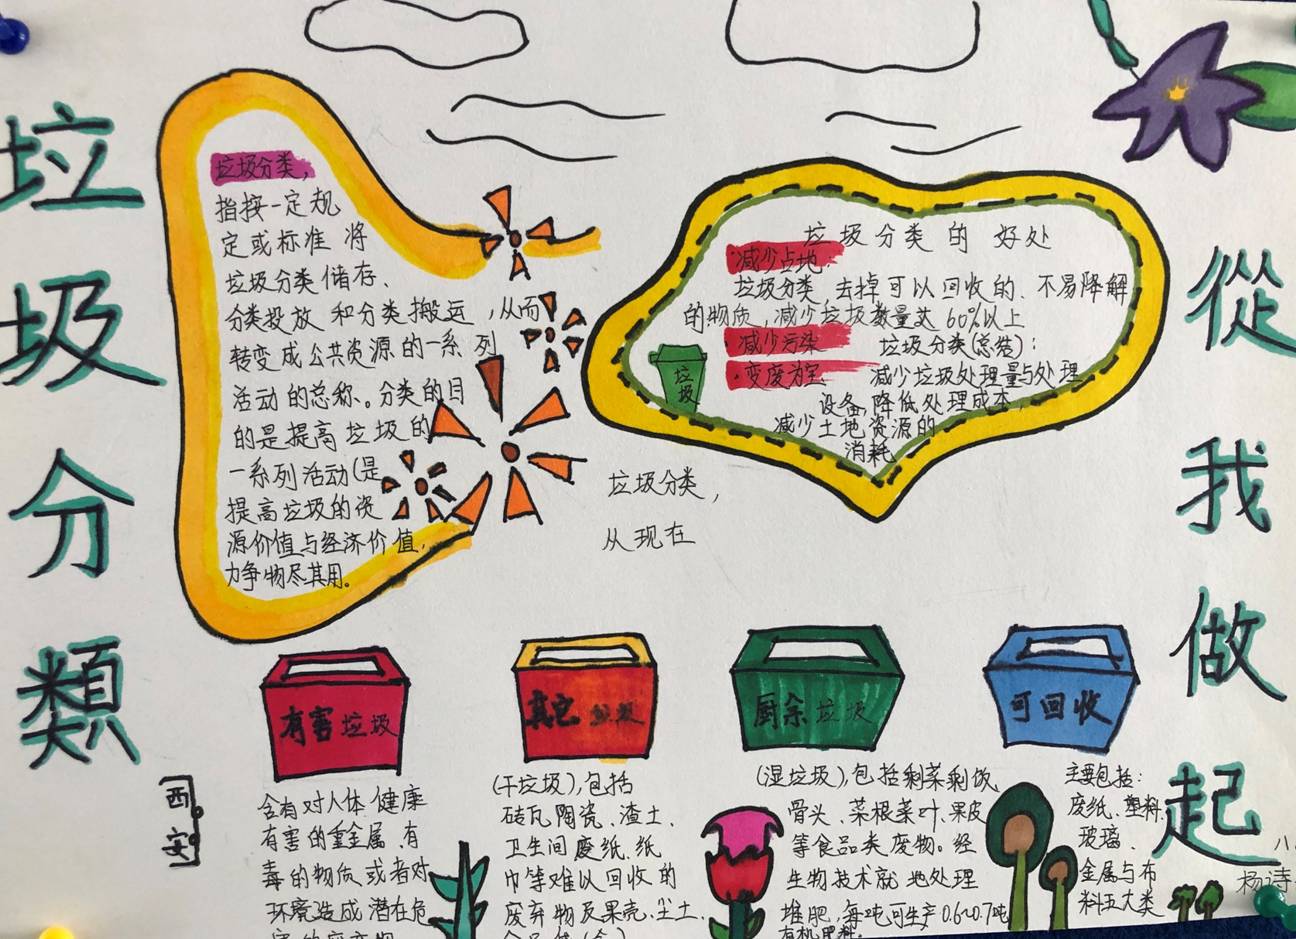 垃圾分類
從我做起
垃圾分类,
指按一定规
定或标准 将
垃圾分类储存、
分类投放 和分类搬运,从而
转变成公共资源的一系列
活动的总称。分类的目
的是提高垃圾的
一系列活动(是
提高垃圾的资
源价值与经济价值,
力争物尽其用。
垃圾分类的好处
·减少占地.
垃圾分类,去掉可以回收的、不易降解
的物质,减少垃圾数量达60%以上
·减少污染
垃圾分类(总结):
·变废为宝
减少垃圾处理量与处理
设备,降低处理成本,
减少土地资源的
消耗
垃圾
垃圾分类,
从现在
有害垃圾
含有对人体健康
有害的重金属、有
毒的物质或者对
环境造成潜在危
其它垃圾
(干垃圾),包括
砖瓦陶瓷、渣土、
卫生间废纸、纸
巾等难以回收的
废弃物及果壳、尘土、
厨余垃圾
(湿垃圾),包括剩菜剩饭
骨头、菜根菜叶、果皮
等食品类废物。经
生物技术就地处理
堆肥,每吨可生产0.6~0.7吨
有机肥料。
可回收
主要包括:
废纸、塑料、
玻璃、
金属与布
料五大类
西安
八
杨诗